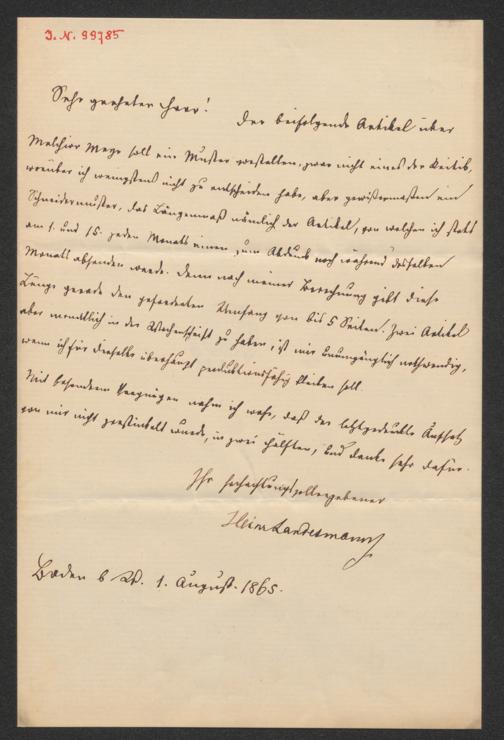 J. N. 99785
Sehr geehrter Herr!
Der beifolgende Artikel über
Melchior Meyr soll ein Muster vorstellen, zwar nicht eines der Kritik,
worüber ich wenigstens nicht zu entscheiden habe, aber gewissermaßen ein
Schneidermuster, das Längenmaß nämlich der Artikel, von welchen ich statt
am 1. und 15. jeden Monats einen zum Abdruck noch während desselben
Monats absenden werde. Denn nach meiner Berechnung gibt diese
Länge gerade den geforderten Umfang von bis 5 Seiten. Zwei Artikel
aber monatlich in der Wochenschrift zu haben, ist mir unumgänglich nothwendig,
wenn ich für dieselbe überhaupt produktionsfähig bleiben soll.
Mit besonderm Vergnügen nahm ich wahr, daß der letztgedruckte Aufsatz
von mir nicht zerstückelt wurde, in zwei Hälften, und danke sehr dafür.
Ihr hochachtungsvollergebener
Heinr Landesmann
Baden b W. 1. August. 1865.